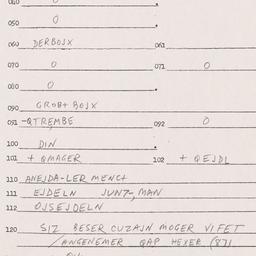 040 0 .
050 0 .
060 DERBOJX 061
070 0 071 0
080 0 .
090 GROB+ BOJX
091 -QTREMBE 092 0
100 DIN .
101 + QMAGER 102 + QEJDL
110 ANEJDA-LER MENC+
111 EJDELN JUN7-, MAN
112 OJSEJDELN
120 SIZ BESER CUZAJN MOGER VI FET
/ANGENEMER QAP HEXER (87)